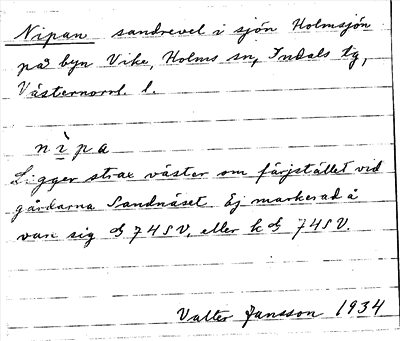 Nipan sandrevel i sjön Holmsjön
på byn Vike, Holms sn, Indals tg,
Västernorrl. l.
nìpa
Ligger strax väster om färjstället vid
gårdarna Sandnäset. Ej markerad å
vare sig 74SV, eller k 74SV.
Valter Jansson 1934